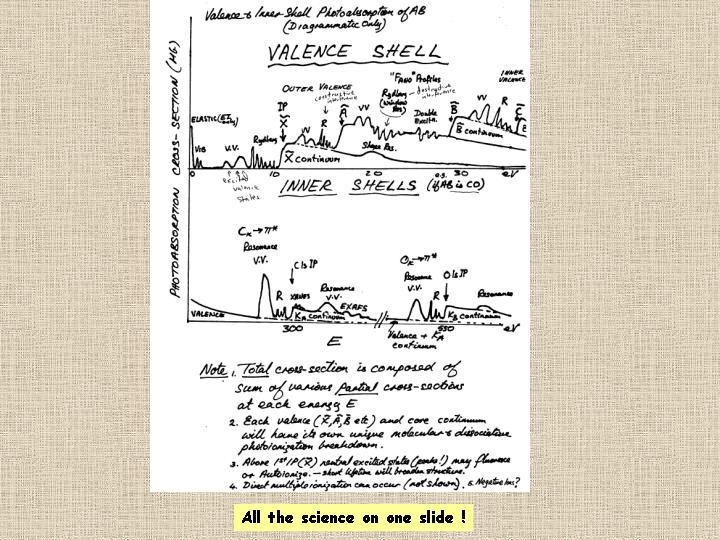 Valence & Inner-Shell Photoabsorption of AB
(Diagrammatic Only)
VALENCE SHELL
PHOTOABSORPTION CROSS-SECTION (Mb)
INNER VALENCE
"FANO" Profiles
OUTER VALENCE
constructive interference
Rydberg (window Res)
destructive interference
IP
X̃
R
Ã
VV
Double Excitn.
B̃
VV
R
ELASTIC
Rydberg
VV
Shape Res.
B̃ continuum
VIB
V.V.
X̃ continuum
0 10 20 e.g. 30 eV
excited valence states
INNER SHELLS (if AB is CO)
CK→π*
Resonance
V.V.
C1s IP
OK→π*
Resonance
V.V.
O1s IP
R
XANES
Resonance
V.V.
EXAFS
R
Resonance
VALENCE
KA continuum
KB continuum
300 550 eV
E
Valence + KA continuum
Note 1. Total cross-section is composed of
sum of various partial cross-sections
at each energy E
2. Each valence (X̃, Ã, B̃ etc) and core continuum
will have its own unique molecular & dissociative
photoionization breakdown.
3. Above 1st IP(X̃) neutral excited states (peaks!) may fluoresce
or Autoionize. — short lifetime will broaden structure.
4. Direct multiple ionization can occur (not shown). 5. Negative ions?
All the science on one slide !